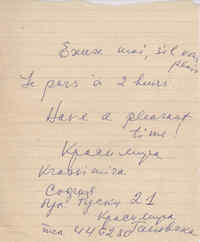 Exuse moi, s'il vous
plais
Je pars à 2 hurs
Have a pleasant
time!
Красимира
Krasimira
София
21
Красимира
тел 446280